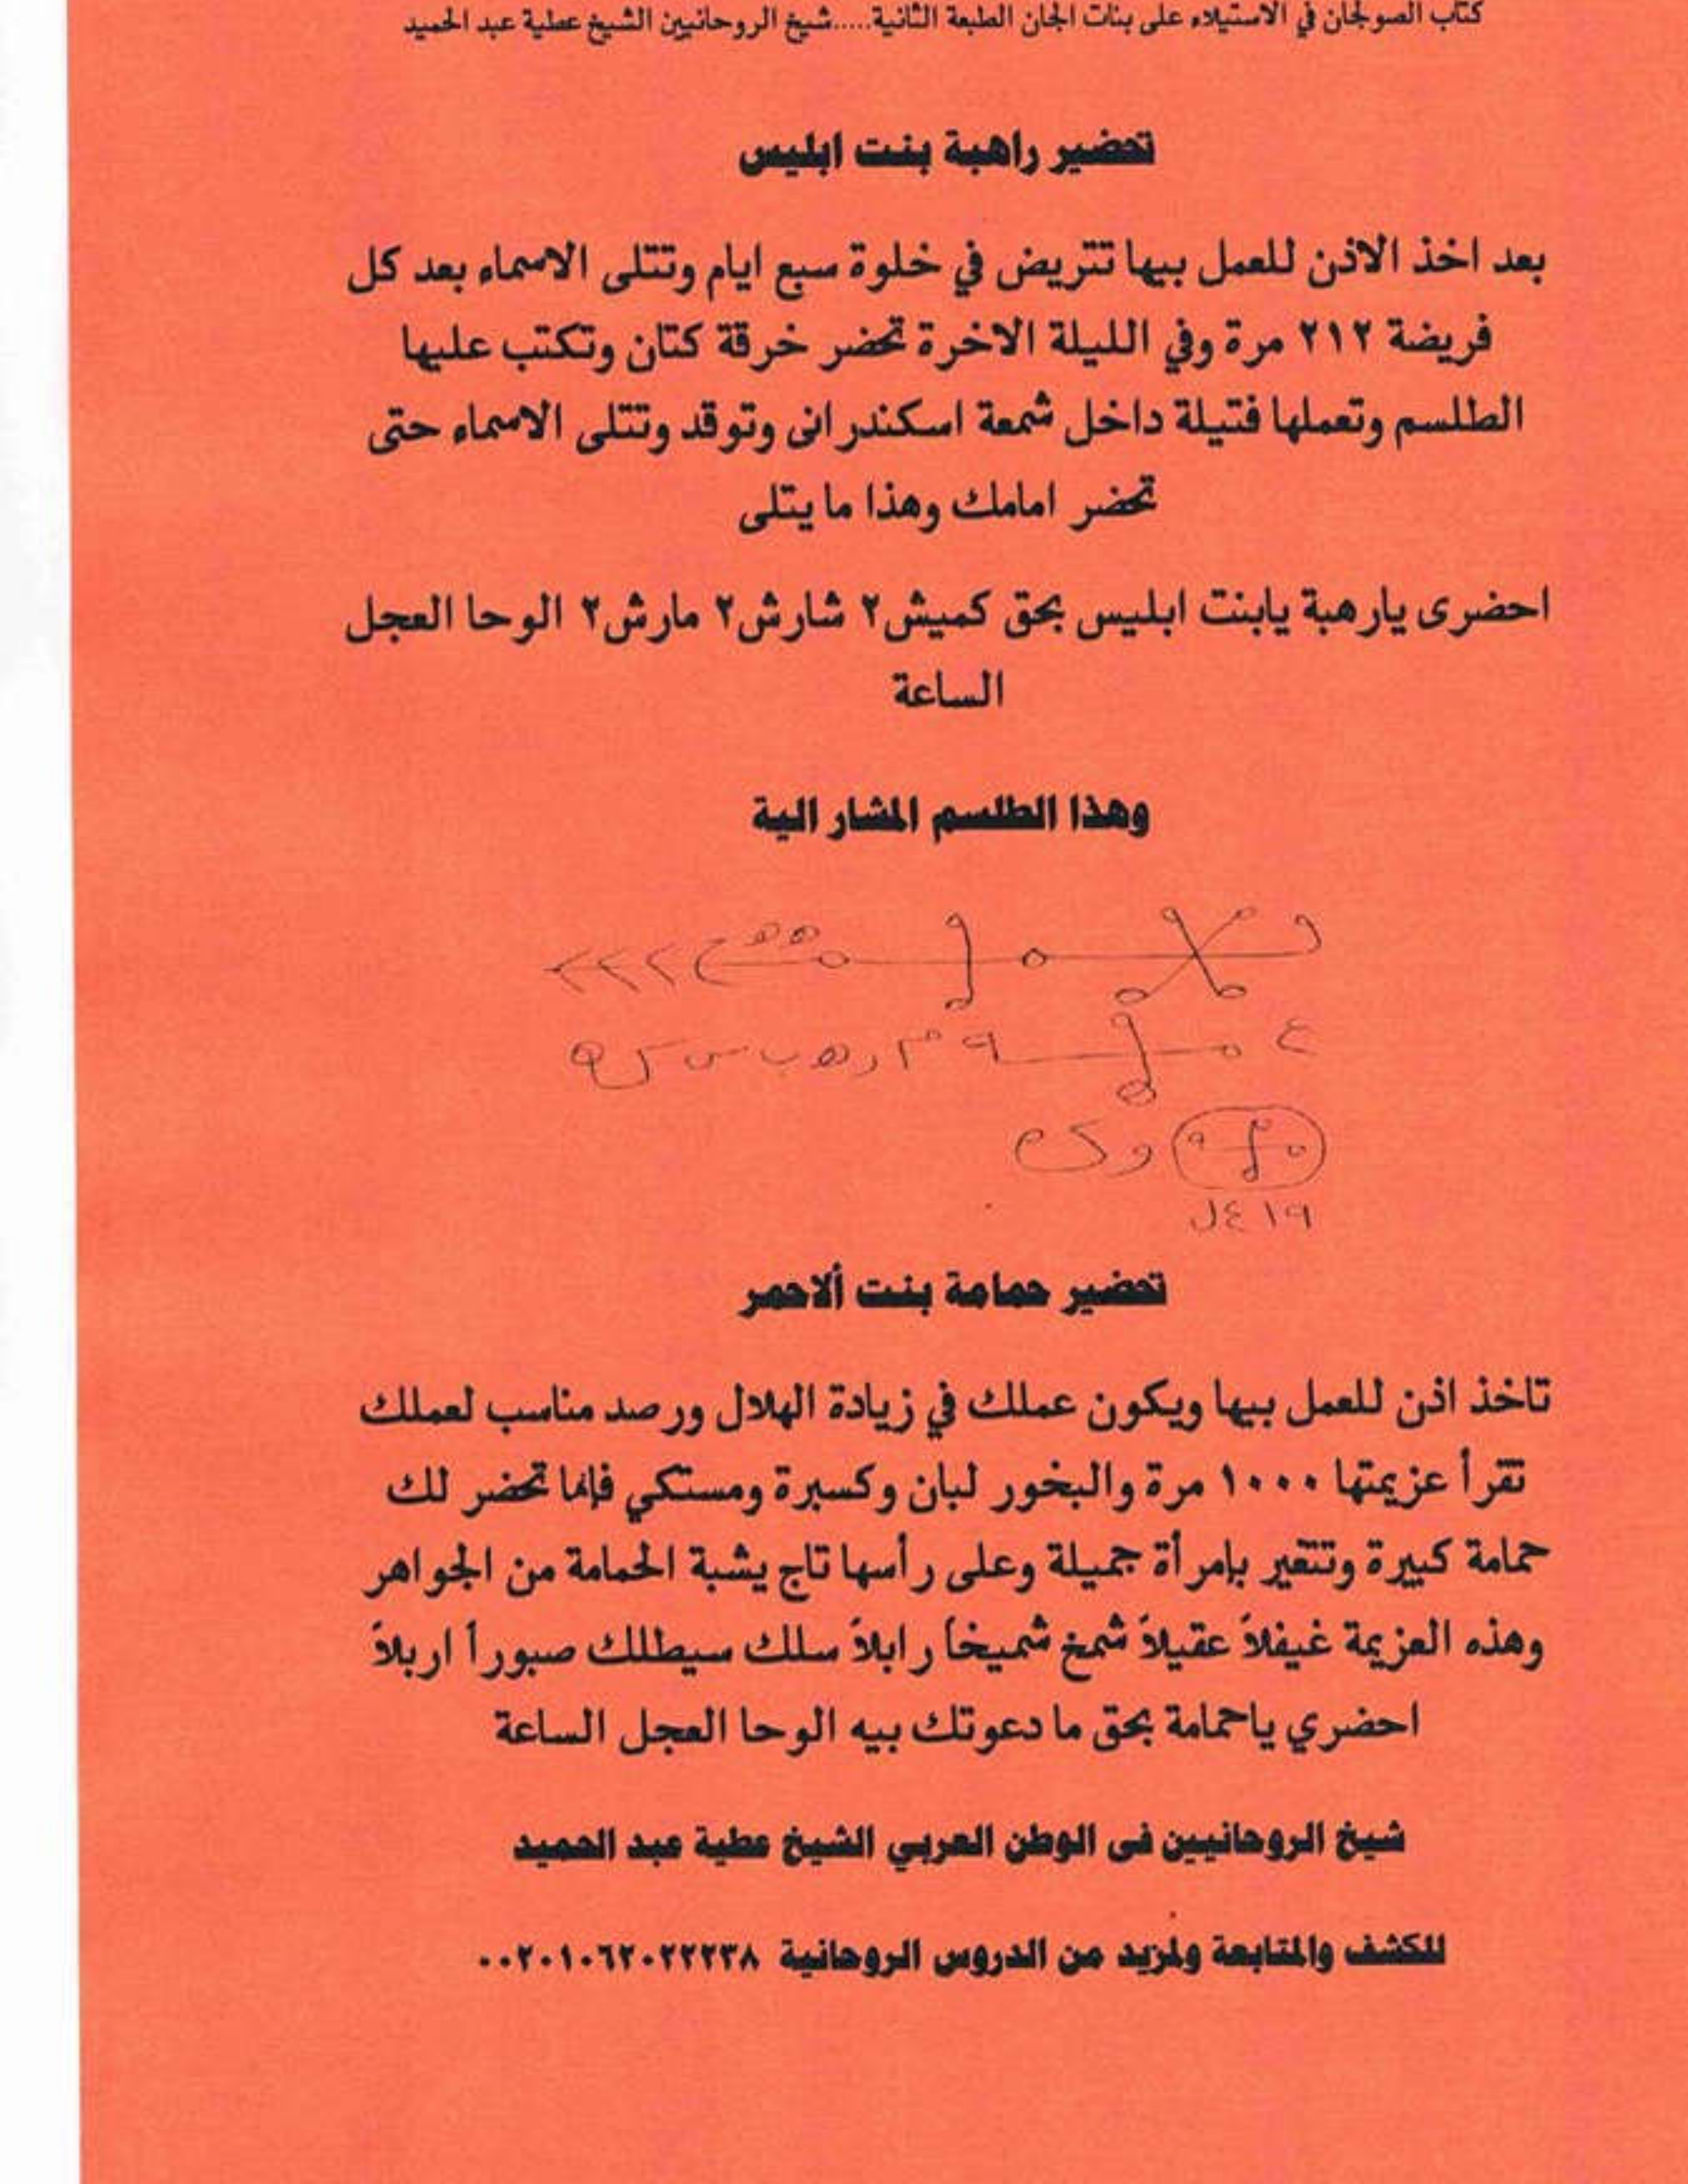 كتاب الصولجان في الاستيلاء على بنات الجان الطبعة الثانية.....شيخ الروحانيين الشيخ عطية عبد الحميد
تحضير راهبة بنت ابليس
بعد اخذ الاذن للعمل بيها تتريض في خلوة سبع ايام وتتلى الاسماء بعد كل
فريضة ٢١٢ مرة وفي الليلة الاخرة تحضر خرقة كتان وتكتب عليها
الطلسم وتعملها فتيلة داخل شمعة اسكندرانى وتوقد وتتلى الاسماء حتى
تحضر امامك وهذا ما يتلى
احضرى يارهبة يابنت ابليس بحق كميش٢ شارش٢ مارش٢ الوحا العجل
الساعة
وهذا الطلسم المشار الية
تحضير حمامة بنت ألاحمر
تاخذ اذن للعمل بيها ويكون عملك في زيادة الهلال ورصد مناسب لعملك
تقرأ عزيمتها ١٠٠٠ مرة والبخور لبان وكسبرة ومستكي فإنما تحضر لك
حمامة كبيرة وتتغير بإمرأة جميلة وعلى رأسها تاج يشبة الحمامة من الجواهر
وهذه العزيمة غيفلاً عقيلاً شمخ شميخاً رابلاً سلك سيطلك صبوراً اربلاً
احضري ياحمامة بحق ما دعوتك بيه الوحا العجل الساعة
شيخ الروحانيين فى الوطن العربي الشيخ عطية عبد الحميد
للكشف والمتابعة ولمزيد من الدروس الروحانية ٠٠٢٠١٠٦٢٠٢٢٢٣٨